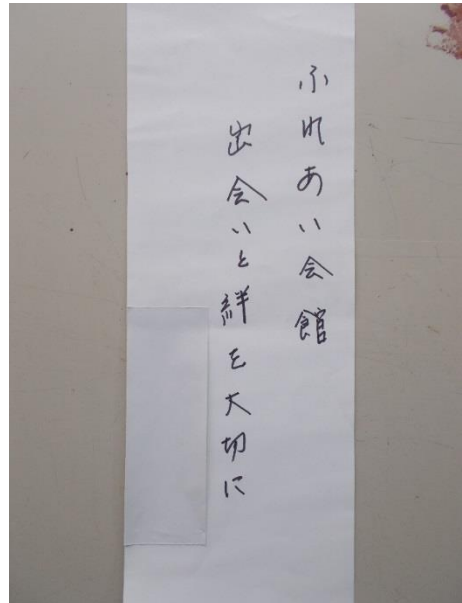 ふれあい会館
出会いと絆を大切に